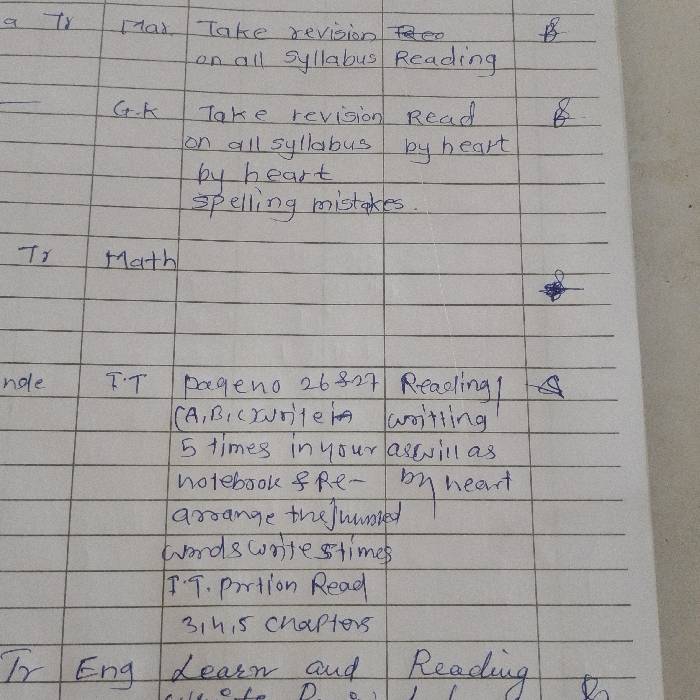 a Tr Mar. Take revision
on all syllabus Reading
G.K Take revision Read
on all syllabus by heart
by heart
spelling mistakes.
Tr Math
nde I.T pageno 26 & 27 Reading/
(A,B,C) write in writting
5 times in your aswill as
notebook & Re- by heart
arrange the jumbled
words write 5 times
I.T. portion Read
3,4,5 chapters
Tr Eng Learn and Reading